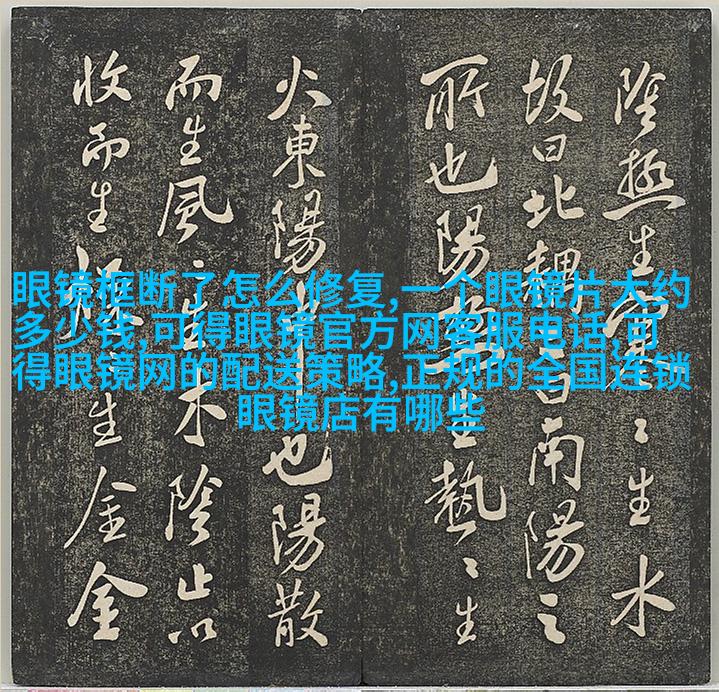 眼镜框断了怎么修复,一个眼镜片大约
多少钱,可得眼镜官方网客服电话,可
得眼镜网的配送策略,正规的全国连锁
眼镜店有哪些
陰極生〻生水
故曰北南陽之
所也陽生熱〻生
火東陽也陽散
而生風〻生木陰止以
收而生生金金